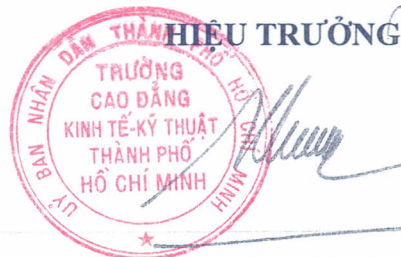 HIỆU TRƯỞNG
ỦY BAN NHÂN DÂN THÀNH PHỐ HỒ CHÍ MINH
TRƯỜNG
CAO ĐẲNG
KINH TẾ-KỸ THUẬT
THÀNH PHỐ
HỒ CHÍ MINH